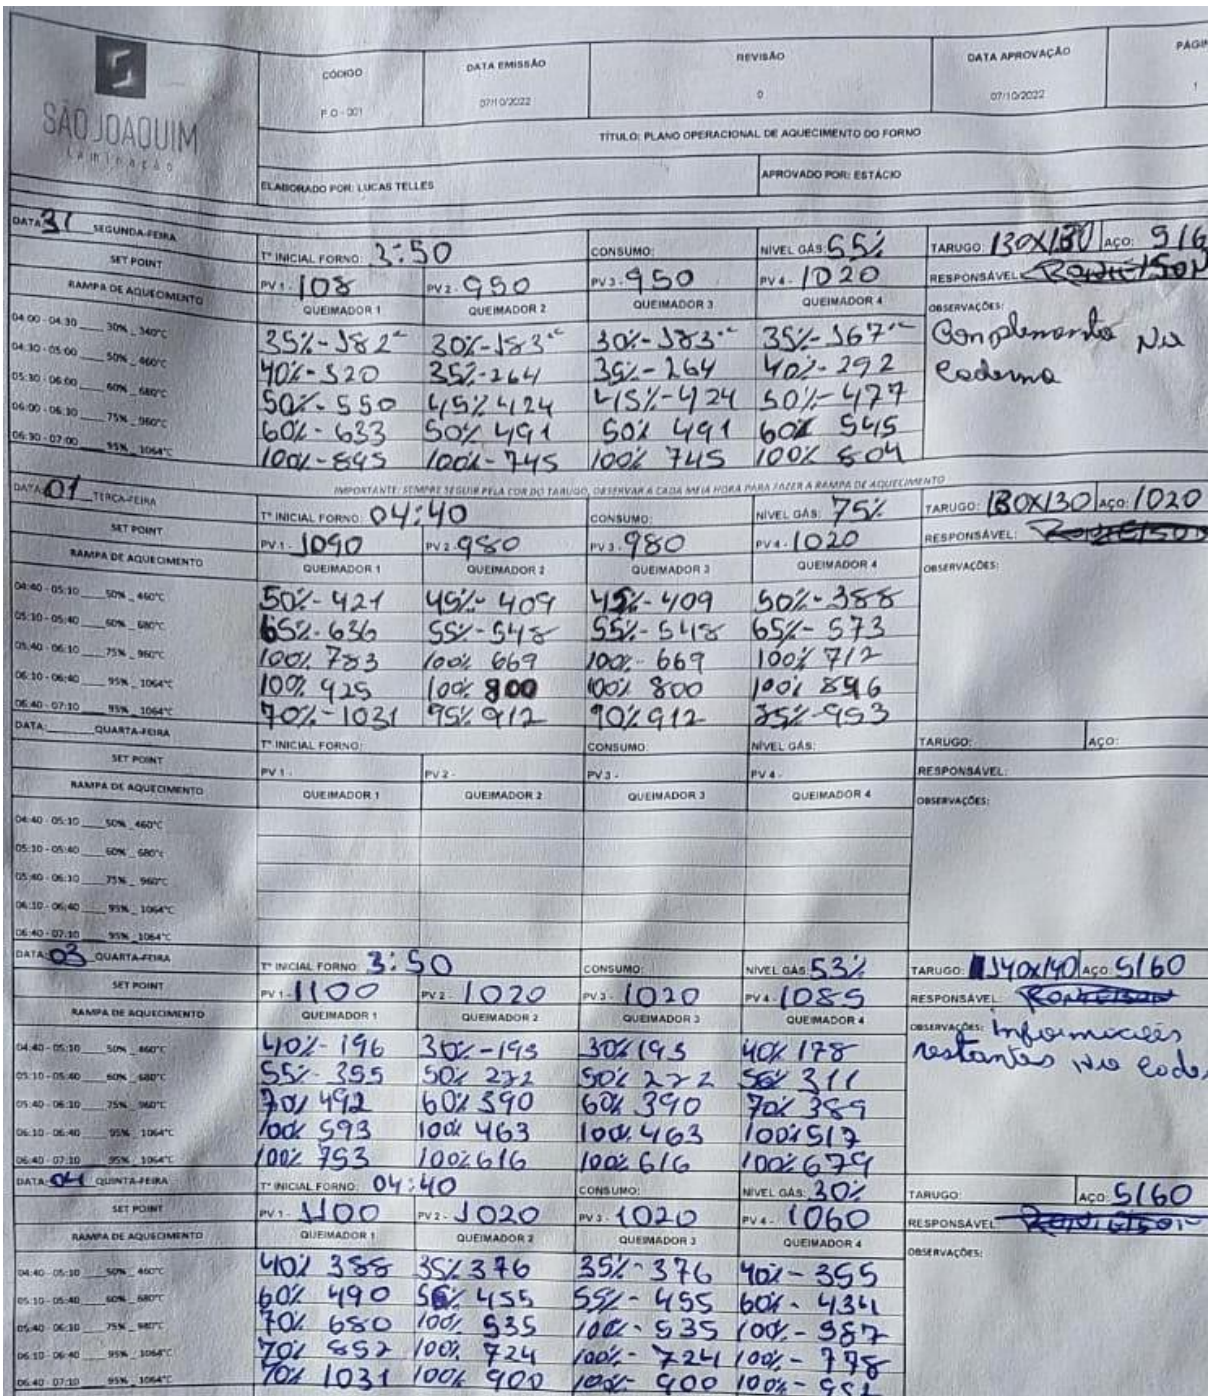 SÃO JOAQUIM
Laminação
CÓDIGO
P.O - 001
DATA EMISSÃO
07/10/2022
REVISÃO
0
DATA APROVAÇÃO
07/10/2022
1
TÍTULO: PLANO OPERACIONAL DE AQUECIMENTO DO FORNO
ELABORADO POR: LUCAS TELLES
APROVADO POR: ESTÁCIO
DATA: 31 SEGUNDA-FEIRA
Tº INICIAL FORNO: 3:50 CONSUMO: NÍVEL GÁS: 55% TARUGO: 130X130 AÇO:
SET POINT PV 1 - 108 PV 2 - 950 PV 3 - 950 PV 4 - 1020 RESPONSÁVEL:
RAMPA DE AQUECIMENTO QUEIMADOR 1 QUEIMADOR 2 QUEIMADOR 3 QUEIMADOR 4 OBSERVAÇÕES:
04:00 - 04:30 ___ 30% _ 340ºC 35%-182 30%-183 30%-183 35%-167
04:30 - 05:00 ___ 50% _ 460ºC 40%-320 35%-264 35%-264 40%-292
05:30 - 06:00 ___ 60% _ 680ºC 50%-550 45% 424 45%-424 50%-477
06:00 - 06:30 ___ 75% _ 960ºC 60%-633 50% 491 50% 491 60% 545
06:30 - 07:00 ___ 95% _ 1064ºC 100%-845 100%-745 100% 745 100% 804
IMPORTANTE: SEMPRE SEGUIR PELA COR DO TARUGO, OBSERVAR A CADA MEIA HORA PARA FAZER A RAMPA DE AQUECIMENTO
DATA: 01 TERÇA-FEIRA
Tº INICIAL FORNO: 04:40 CONSUMO: NÍVEL GÁS: 75% TARUGO: 130X130 AÇO: 1020
SET POINT PV 1 - 1090 PV 2 - 980 PV 3 - 980 PV 4 - 1020 RESPONSÁVEL:
RAMPA DE AQUECIMENTO QUEIMADOR 1 QUEIMADOR 2 QUEIMADOR 3 QUEIMADOR 4 OBSERVAÇÕES:
04:40 - 05:10 ___ 50% _ 460ºC 50%-421 45%-409 45%-409 50%-388
05:10 - 05:40 ___ 60% _ 680ºC 65%-636 55%-548 55%-548 65%-573
05:40 - 06:10 ___ 75% _ 960ºC 100% 783 100% 669 100%-669 100% 712
06:10 - 06:40 ___ 95% _ 1064ºC 100% 925 100% 800 100% 800 100% 846
06:40 - 07:10 ___ 95% _ 1064ºC 70%-1031 95% 912 90% 912 35%-953
DATA:___ QUARTA-FEIRA
Tº INICIAL FORNO: CONSUMO: NÍVEL GÁS: TARUGO: AÇO:
SET POINT PV 1 - PV 2 - PV 3 - PV 4 - RESPONSÁVEL:
RAMPA DE AQUECIMENTO QUEIMADOR 1 QUEIMADOR 2 QUEIMADOR 3 QUEIMADOR 4 OBSERVAÇÕES:
04:40 - 05:10 ___ 50% _ 460ºC
05:10 - 05:40 ___ 60% _ 680ºC
05:40 - 06:10 ___ 75% _ 960ºC
06:10 - 06:40 ___ 95% _ 1064ºC
06:40 - 07:10 ___ 95% _ 1064ºC
DATA: 03 QUARTA-FEIRA
Tº INICIAL FORNO: 3:50 CONSUMO: NÍVEL GÁS: 53% TARUGO: 140x140 AÇO: 5160
SET POINT PV 1 - 1100 PV 2 - 1020 PV 3 - 1020 PV 4 - 1085 RESPONSÁVEL:
RAMPA DE AQUECIMENTO QUEIMADOR 1 QUEIMADOR 2 QUEIMADOR 3 QUEIMADOR 4 OBSERVAÇÕES: Informações
restantes
04:40 - 05:10 ___ 50% _ 460ºC 40%-196 30%-193 30% 193 40% 178
05:10 - 05:40 ___ 60% _ 680ºC 55%-355 50% 272 50% 272 311
05:40 - 06:10 ___ 75% _ 960ºC 70% 492 60% 390 60% 390 70% 389
06:10 - 06:40 ___ 95% _ 1064ºC 100% 593 100% 463 100% 463 100% 517
06:40 - 07:10 ___ 95% _ 1064ºC 100% 753 100% 616 100% 616 100% 679
DATA: 04 QUINTA-FEIRA
Tº INICIAL FORNO: 04:40 CONSUMO: NÍVEL GÁS: 30% TARUGO: AÇO: 5160
SET POINT PV 1 - 1100 PV 2 - 1020 PV 3 - 1020 PV 4 - 1060 RESPONSÁVEL:
RAMPA DE AQUECIMENTO QUEIMADOR 1 QUEIMADOR 2 QUEIMADOR 3 QUEIMADOR 4 OBSERVAÇÕES:
04:40 - 05:10 ___ 50% _ 460ºC 40% 388 35% 376 35%-376 40%-355
05:10 - 05:40 ___ 60% _ 680ºC 60% 490 55% 455 55%-455 60%-434
05:40 - 06:10 ___ 75% _ 980ºC 70% 680 100% 535 100%-535 100%-587
06:10 - 06:40 ___ 95% _ 1064ºC 70% 852 100% 724 100%-724 100%-778
06:40 - 07:10 ___ 95% _ 1064ºC 70% 1031 100% 900 100%-900 100%-